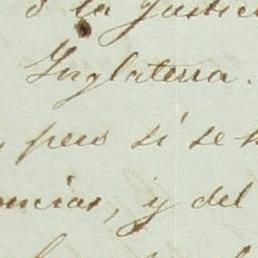 ó la Justici
Inglaterra.
, pero si se h
encias, y del